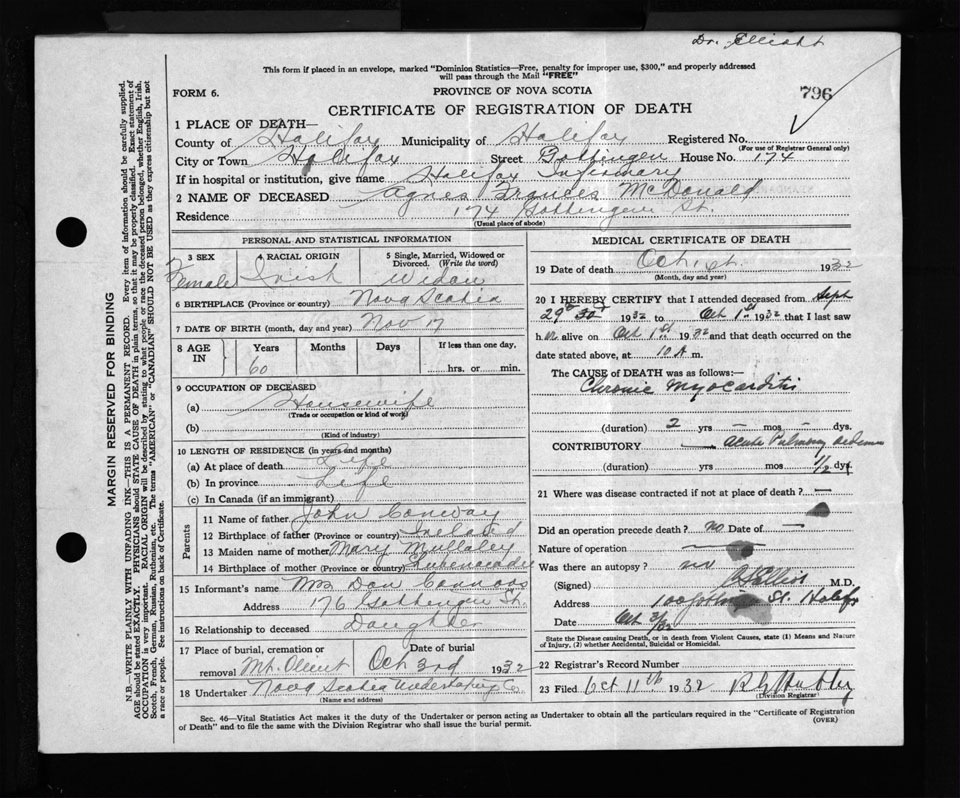 Dr. Elliott
This form if placed in an envelope, marked "Dominion Statistics—Free, penalty for improper use, $300," and properly addressed
will pass through the Mail "FREE"
FORM 6.
PROVINCE OF NOVA SCOTIA
796
CERTIFICATE OF REGISTRATION OF DEATH
1 PLACE OF DEATH—
County of Halifax Municipality of Halifax Registered No.
(For use of Registrar General only)
City or Town Halifax Street Gottingen House No. 174
If in hospital or institution, give name Halifax Infirmary
2 NAME OF DECEASED Agnes Frances McDonald
Residence 174 Gottingen St.
(Usual place of abode)
PERSONAL AND STATISTICAL INFORMATION
3 SEX 4 RACIAL ORIGIN 5 Single, Married, Widowed or Divorced. (Write the word)
Female Irish Widow
6 BIRTHPLACE (Province or country) Nova Scotia
7 DATE OF BIRTH (month, day and year) Nov 17
8 AGE IN Years Months Days If less than one day,
60 hrs. or min.
9 OCCUPATION OF DECEASED
(a) Housewife
(Trade or occupation or kind of work)
(b)
(Kind of industry)
10 LENGTH OF RESIDENCE (in years and months)
(a) At place of death Life
(b) In province Life
(c) In Canada (if an immigrant)
Parents
11 Name of father John Conway
12 Birthplace of father (Province or country) Ireland
13 Maiden name of mother Mary Mullaley
14 Birthplace of mother (Province or country)
15 Informant's name Mrs Dan Connors
Address 176 Gottingen St.
16 Relationship to deceased Daughter
17 Place of burial, cremation or removal Mt. Olivet Date of burial Oct 3rd 1932
18 Undertaker Nova Scotia Undertaking Co
(Name and address)
MEDICAL CERTIFICATE OF DEATH
19 Date of death Oct, 1st. 1932
(Month, day and year)
20 I HEREBY CERTIFY that I attended deceased from Sept
29th 30th 1932 to Oct 1st 1932 that I last saw
h er alive on Oct 1st 1932 and that death occurred on the
date stated above, at 10 A m.
The CAUSE of DEATH was as follows:—
Chronic Myocarditis
(duration) 2 yrs — mos — dys.
CONTRIBUTORY acute Pulmonary oedema
(duration) yrs mos 1/2 dys.
21 Where was disease contracted if not at place of death? —
Did an operation precede death? no Date of —
Nature of operation —
Was there an autopsy? no
(Signed) Elliott M.D.
Address St. Halifax
Date Oct 3/32
State the Disease causing Death, or in death from Violent Causes, state (1) Means and Nature
of Injury, (2) whether Accidental, Suicidal or Homicidal.
22 Registrar's Record Number
23 Filed Oct 11th 1932
(Division Registrar)
Sec. 46—Vital Statistics Act makes it the duty of the Undertaker or person acting as Undertaker to obtain all the particulars required in the "Certificate of Registration
of Death" and to file the same with the Division Registrar who shall issue the burial permit.
(OVER)
MARGIN RESERVED FOR BINDING
N.B.—WRITE PLAINLY WITH UNFADING INK—THIS IS A PERMANENT RECORD. Every item of information should be carefully supplied.
AGE should be stated EXACTLY. PHYSICIANS should STATE CAUSE OF DEATH in plain terms, so that it may be properly classified. Exact statement of
OCCUPATION is very important. RACIAL ORIGIN will be described by stating to what people or race the deceased person belonged, whether English, Irish,
Scotch, French, German, Russian, Ruthenian, etc. The terms "AMERICAN" or "CANADIAN" SHOULD NOT BE USED as they express citizenship but not
a race or people. See instructions on back of Certificate.